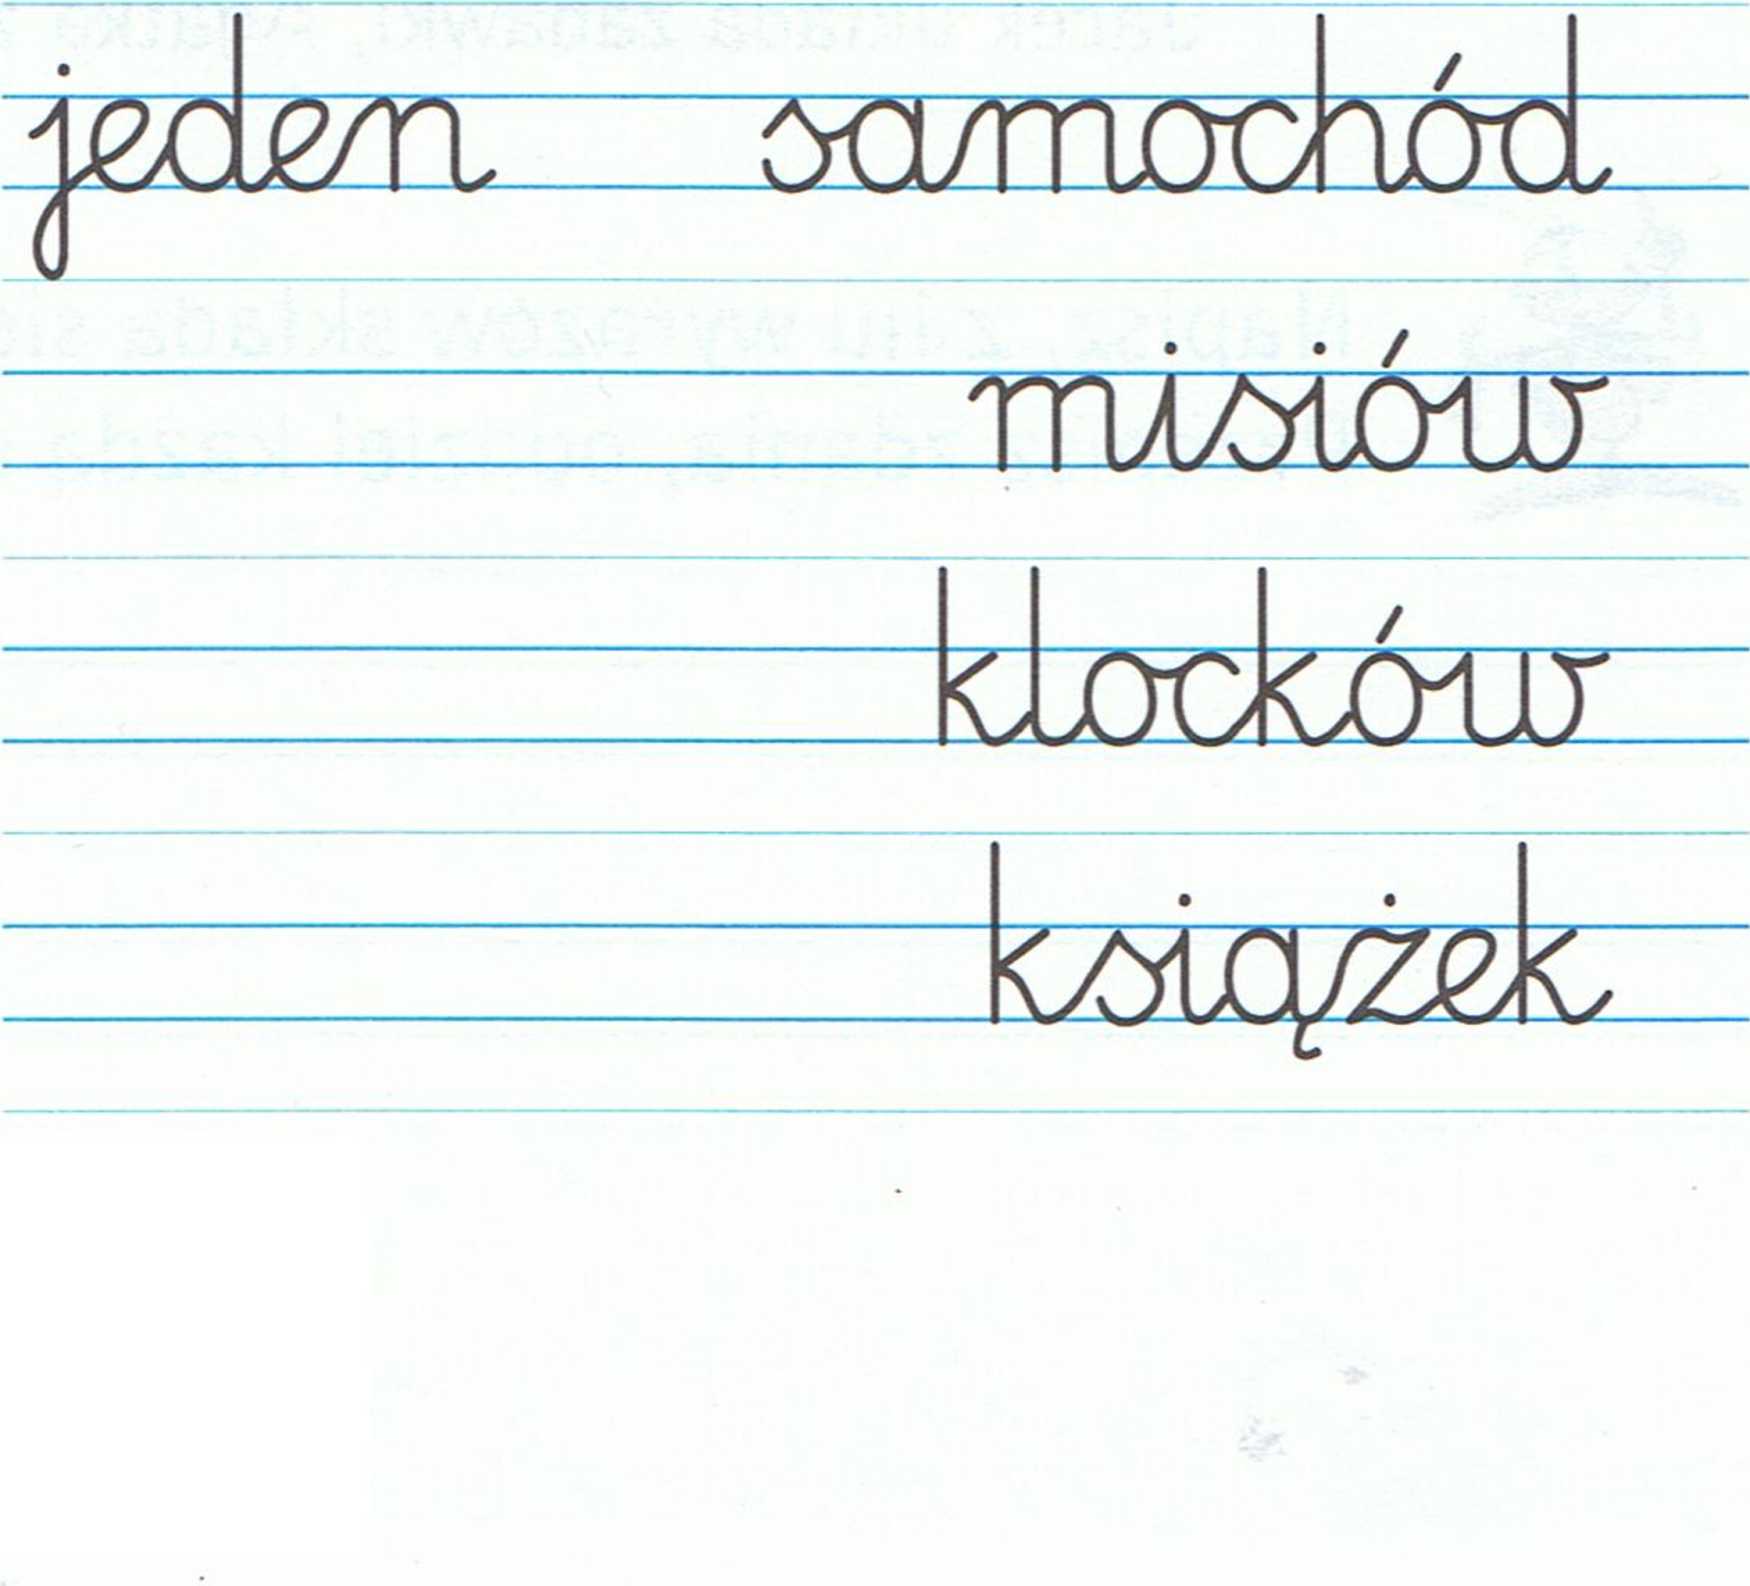 jeden samochód
misiów
klocków
książek